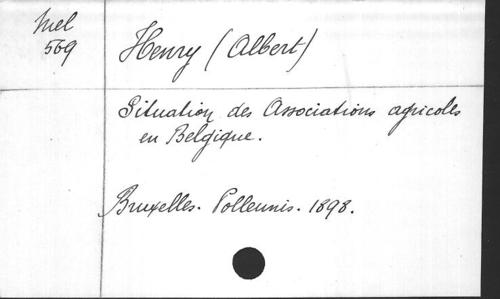 Mel
569
Henry (Albert)
Situation des Associations agricoles
en Belgique.
Bruxelles. Polleunis. 1898.